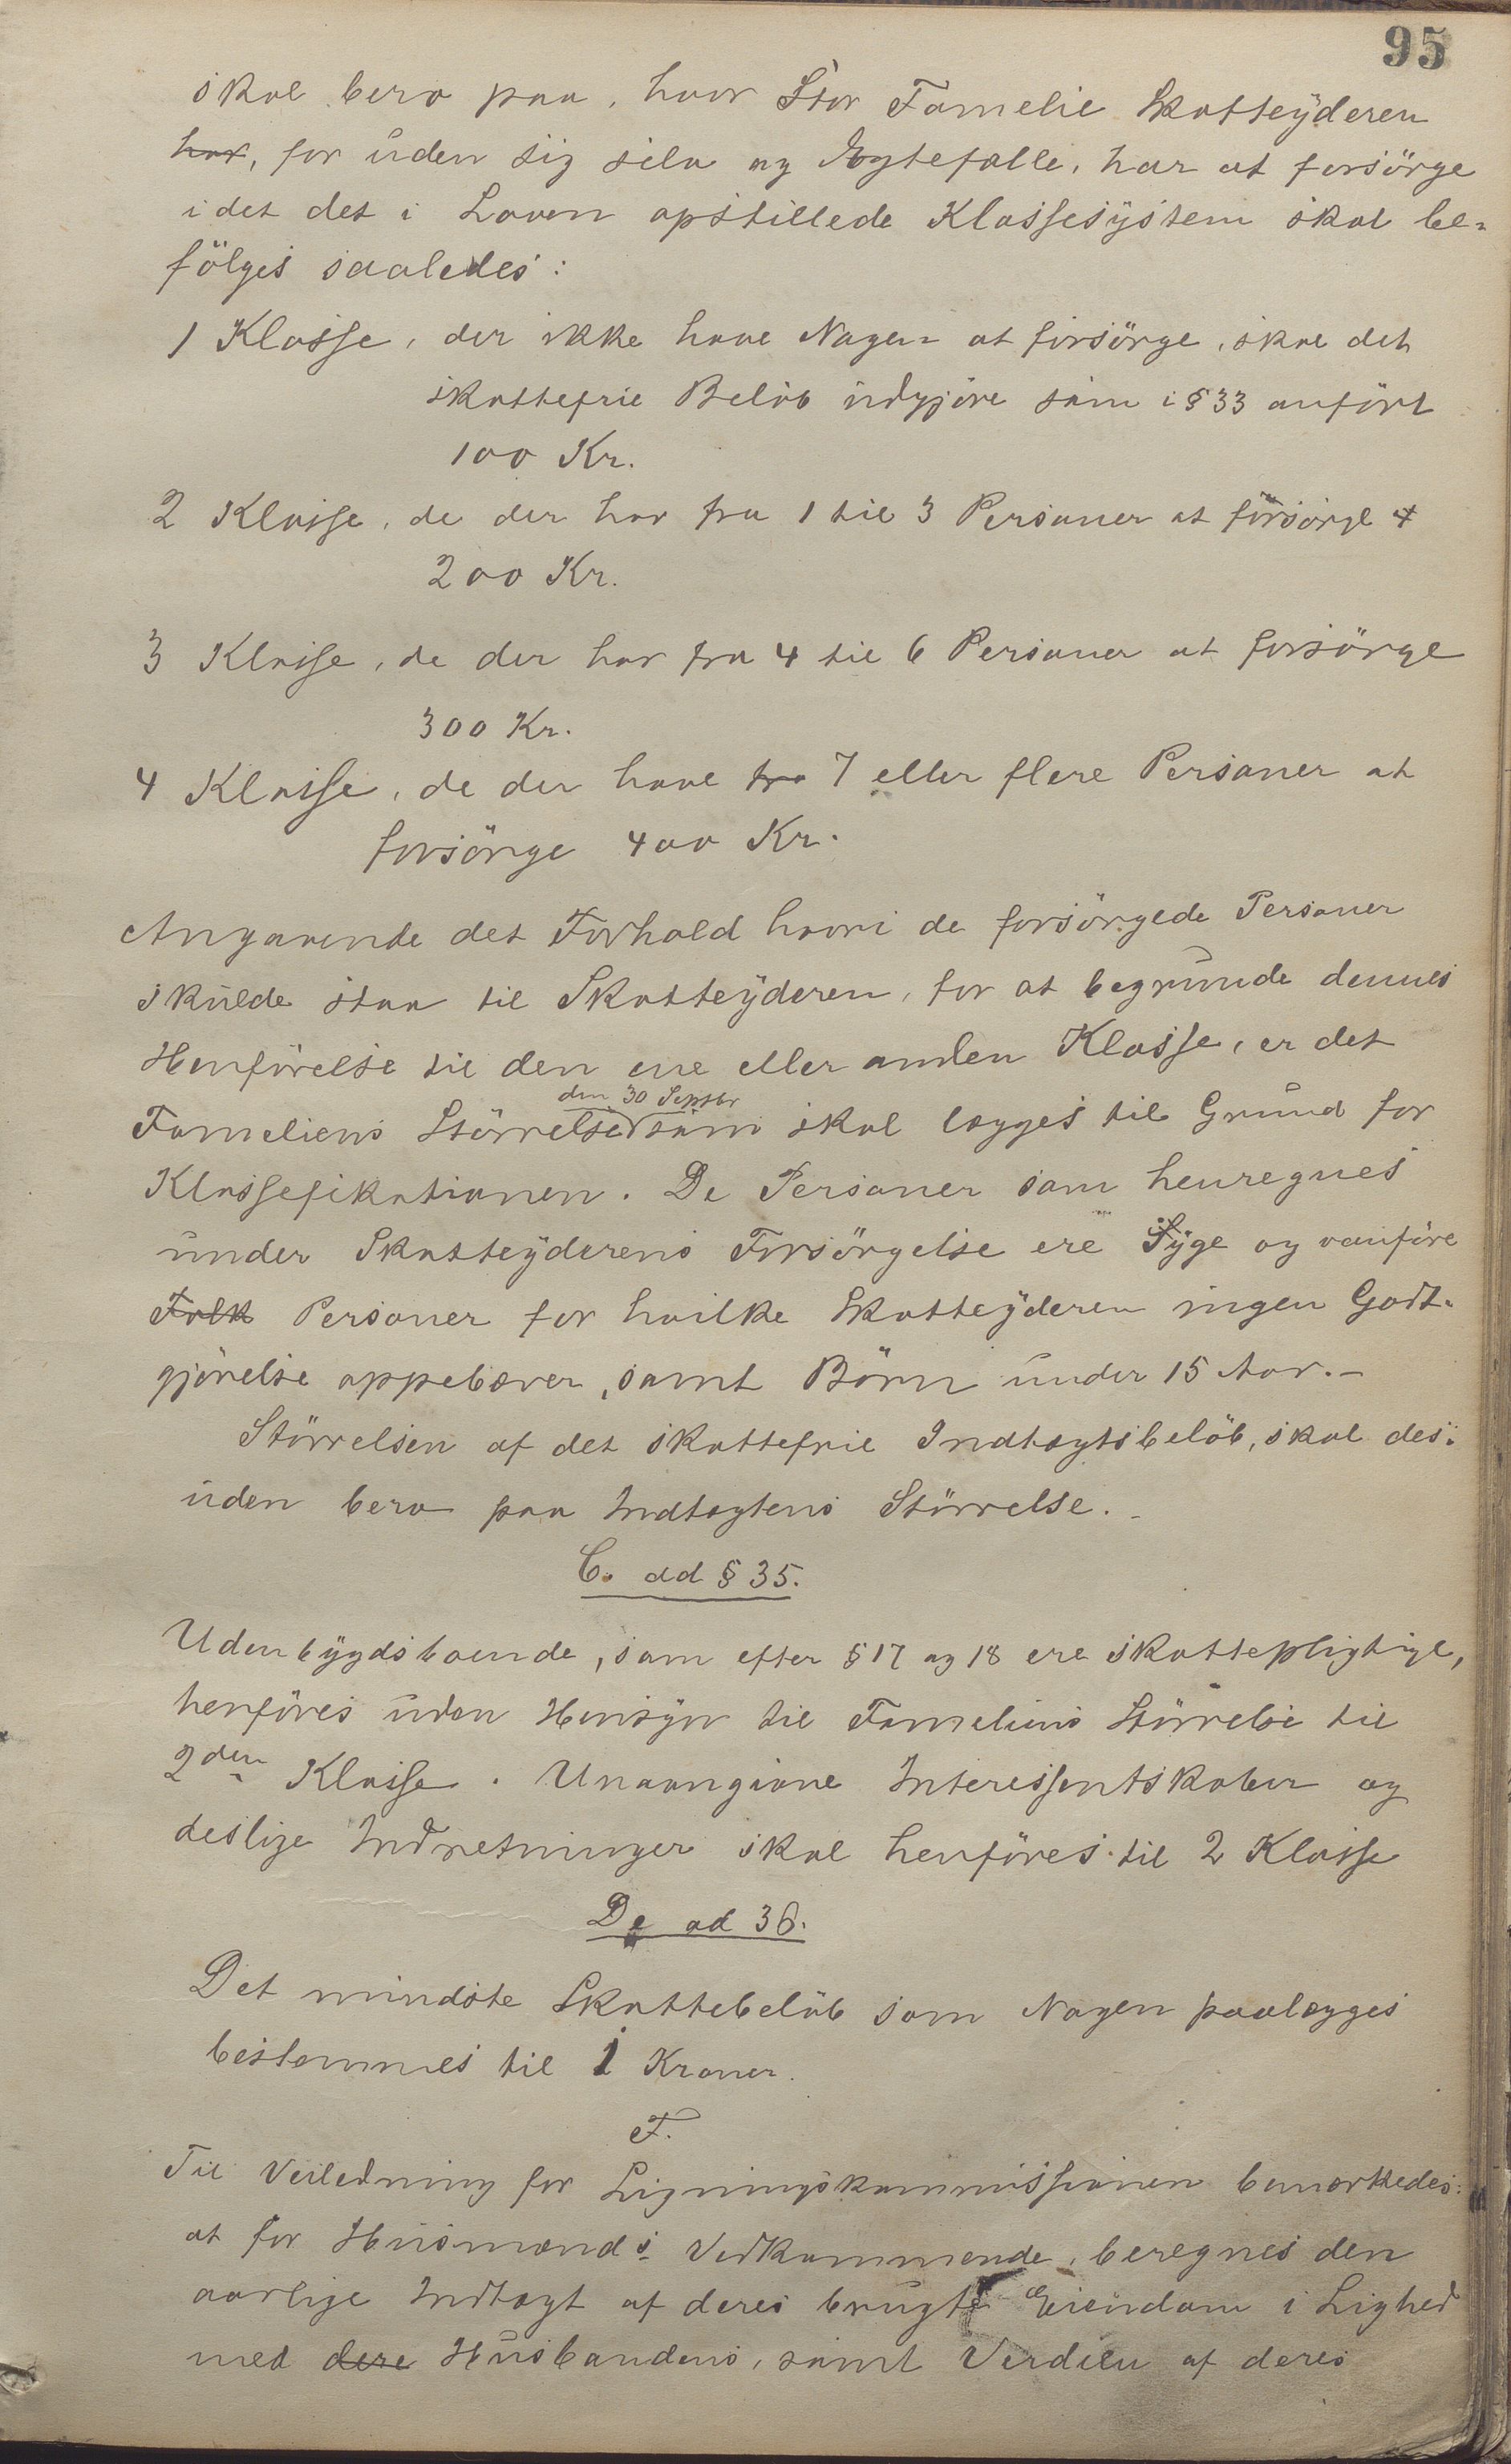 95
skal bero paa, hvor Stor Famelie Skatteyderen
har, for uden sig selv og Ægtefælle, har at forsörge
i det det i Loven opstillede Klassesystem skal be-
fölges saaledes:
1 Klasse, der ikke have Nogen at forsörge, skal det
skattefrie Belöb udgjöre som i § 33 anfört
100 Kr.
2 Klasse, de der har fra 1 til 3 Personer at forsörge 4
200 Kr.
3 Klasse, de der har fra 4 til 6 Personer at forsörge
300 Kr.
4 Klasse, de der have fra 7 eller flere Personer at
forsörge 400 Kr.
Angaaende det Forhold hvori de forsörgede Personer
skulde staa til Skatteyderen, for at begrunde dennes
Henförelse til den ene eller anden Klasse, er det
den 30 Septbr
Fameliens Störrelse som skal lægges til Grund for
Klassefikationen. De Personer som henregnes
under Skatteyderens Forsörgelse ere Syge og vanföre
Folk Personer for hvilke Skatteyderen ingen Godt-
gjörelse oppebærer, samt Börn under 15 Aar.-
Störrelsen af det skattefrie Indtægtsbelöb, skal des-
uden bero paa Indtægtens Störrelse.-
C. ad § 35.
Udenbygdsboende, som efter § 17 og 18 ere skattepligtige,
henföres uden Hensyn til Fameliens Störrelse til
2den Klasse. Unavngivne Interessentskaber og
deslige Indretninger skal henföres til 2 Klasse
De ad 36.
Det mindste Skattebelöb som Nogen paalægges
bestemmes til 1 Kroner.
F.
Til Veiledning for Ligningskommissionen bemærkedes:
at for Husmænds Vedkommende, beregnes den
aarlige Indtægt af deres brugte Eiendom i Lighed
med dere Husbondens, samt Verdien af deres